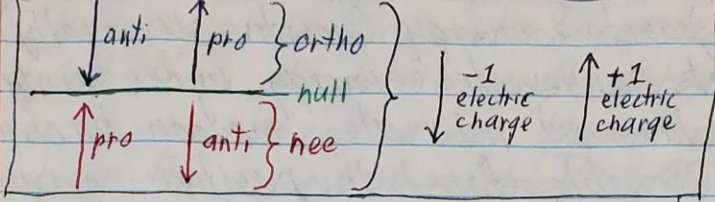 anti pro ortho
null
pro anti nee
-1
electric
charge
+1
electric
charge